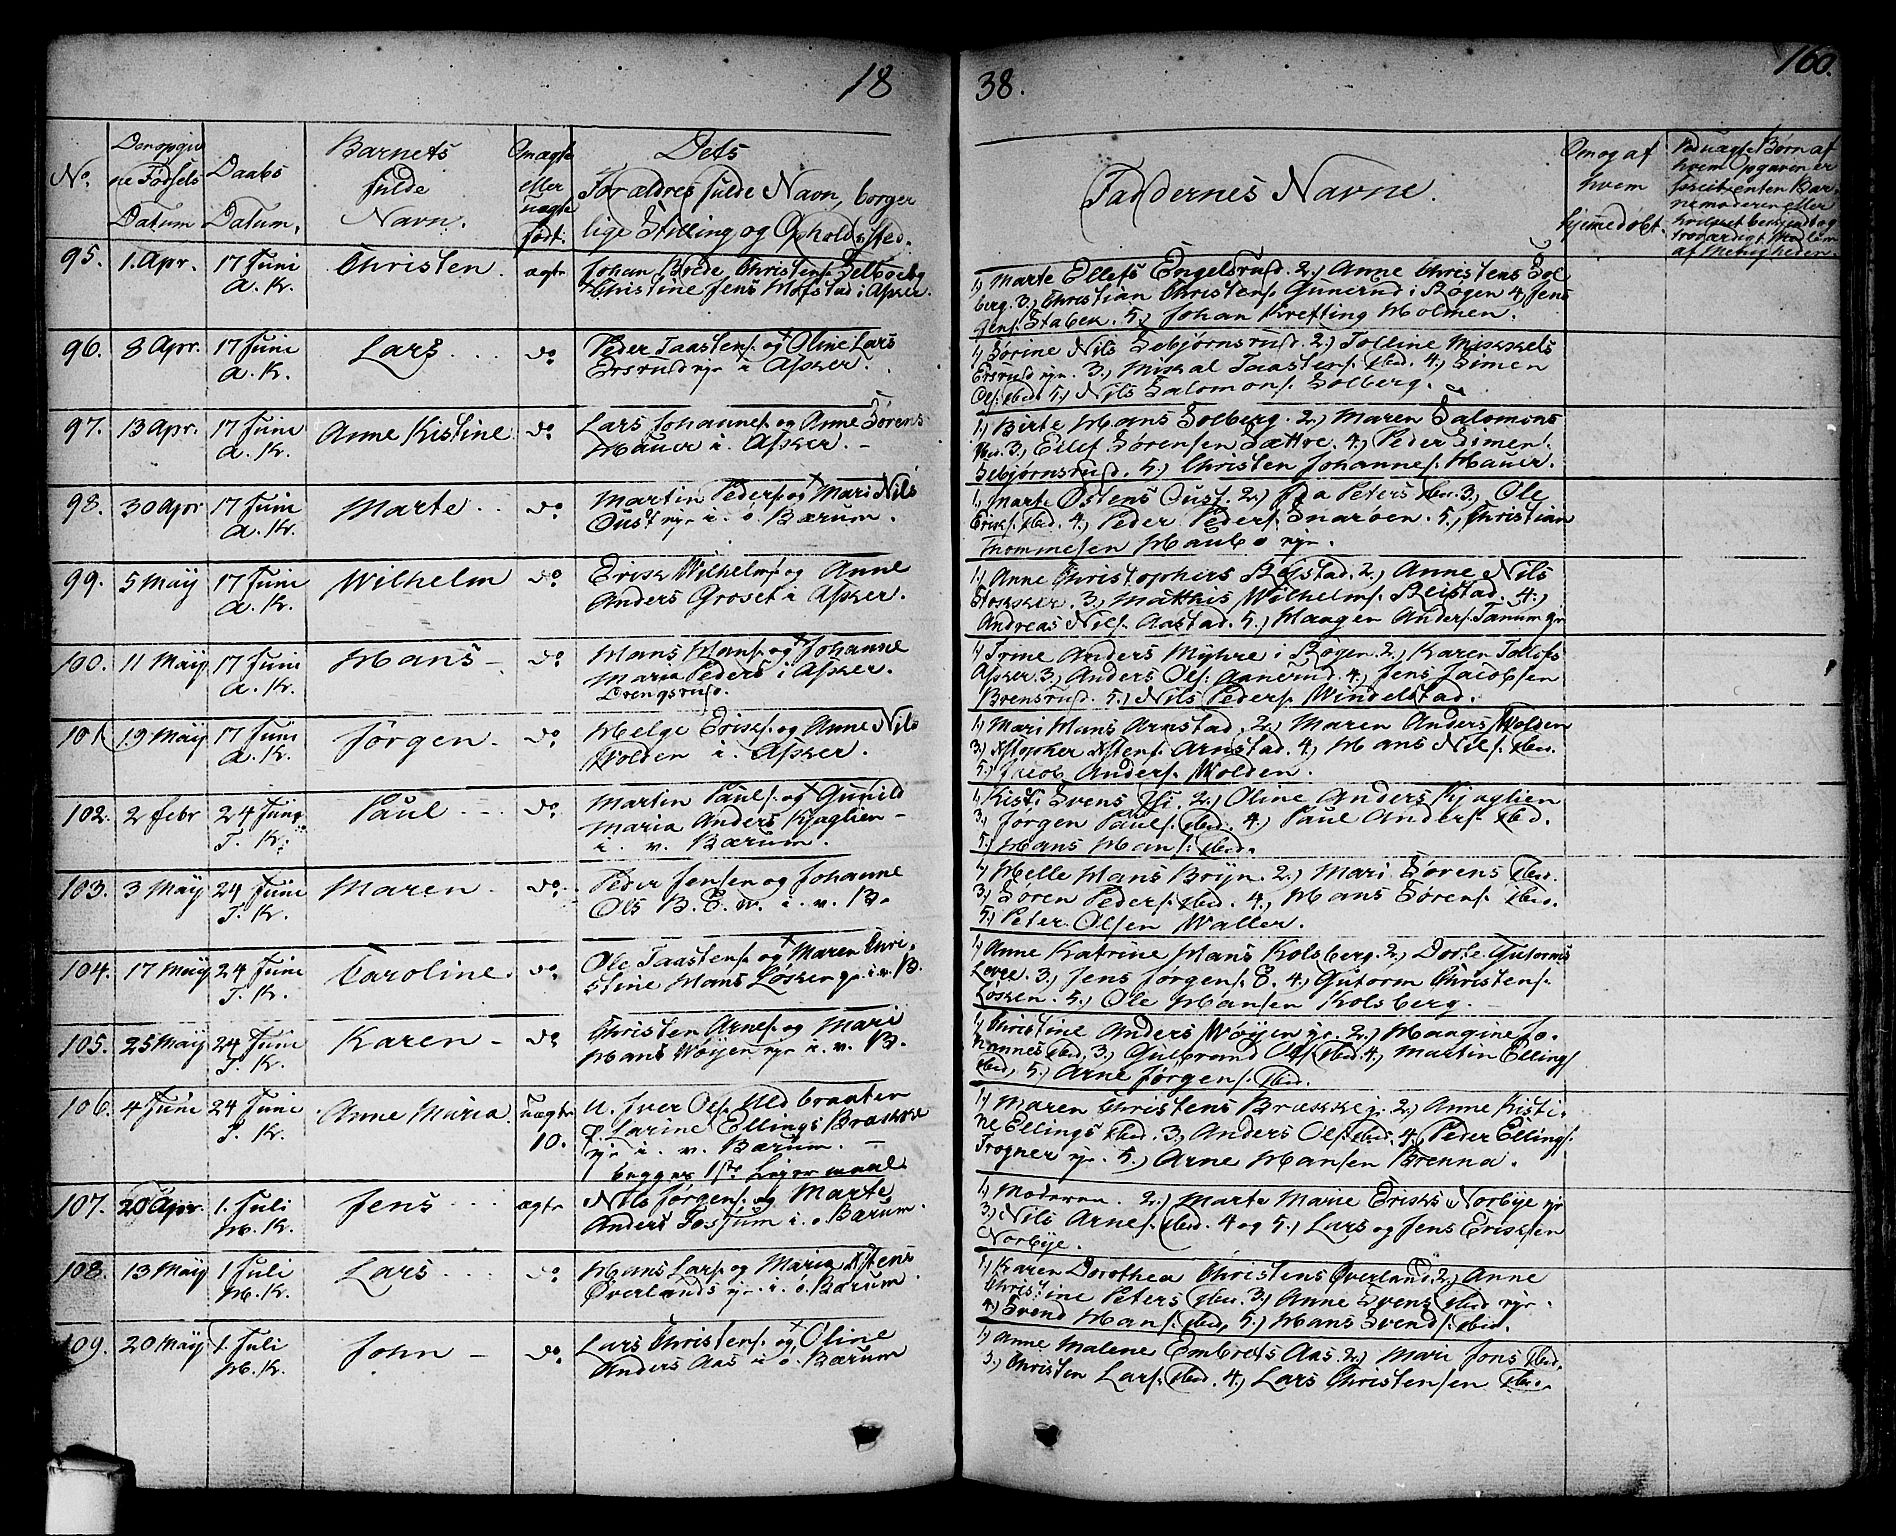 18 38. 160.
No.
Den opgiv
ne Fødsels
Datum
Daabs
Datum.
Barnets
fulde
Navn.
Om ægte
eller
uægte
født.
Dets
Forældres fulde Navn, borger
lige Stilling og Opholdssted.
Faddernes Navne.
Om og af
hvem
hjemmedøbt.
Børn af
hvem Opgaven er
95. 1. Apr. 17 Juni Christen. ægte Johan Brede Christens.
A. K. Christine Jens Hofstad i Asker.
1, Marte Ellefs Engelsrud. 2, Anne Christens Sol
berg. 3, Christian Christens. Gunerud i Røgen 4, Jens
Jens. Stabek. 5, Johan Krefting Holmen.
96. 8 Apr. 17 Juni Lars do Peder Taastens. og Oline Lars
A. K. Ersrud i Asker.
1, Sørine Nils Sebjørnsrud. 2, Tolline Mikkels
Ersrud. 3, Mikkal Taastens. ibid. 4, Simen
Ols. ibid. 5, Nils Salomons. Solberg.
97. 13 Apr. 17 Juni Anne Kistine do Lars Johannes. og Anne Sørens
A. K. Hauer i Asker. -
1, Birte Hans Solberg. 2, Maren Salomons
ibid. 3, Ellef Sørensen Sættre. 4, Peder Simens.
Sebjørnsrud. 5, Christen Johannes. Hauer.
98. 30 Apr 17 Juni Marte do Martin Peders. og Mari Nils
A. K. Oust i ø. Bærum.
1, Marte Ostens Oust. 2, Peters ibid. 3, Ole
Eriks. ibid. 4, Peder Peders. Snarøen. 5, Christian
99. 5 May 17 Juni Wilhelm do Erik Wilhelms. og Anne
A. K. Anders Groset i Asker.
1, Anne Christophers. 2, Anne Nils
Stokker. 3, Matthis Wilhelms. Reistad. 4,
Andreas Nils. Aastad. 5, Haagen Anders. Tanum
100. 11 May 17 Juni Hans - do Hans Hans. og Johanne
A. K. Maria Peders i Asker.
Drengsrud.
1, Anders Myhre i Røgen 2, Karen
Asker 3, Anders Ols. 4, Jens Jacobsen
Brensrud. 5, Nils Peders. Windelstad.
101 19 May 17 Juni Jørgen. do Helge Eriks. og Anne Nils
A. K. Wolden i Asker.
1, Mari Hans Arnstad. 2, Maren Anders Wolden
3, Arnstad. 4, Hans Nils. ibid.
5, Jacob Anders. Wolden.
102. 2 Febr 24 Juni Paul do Martin Pauls. og Gunild
T. K. Maria Anders Kjaglien -
i v. Bærum.
1, Svens. 2, Oline Anders Kjaglien
3, Jørgen Pauls. ibid. 4, Paul Anders. ibid.
5, Hans Hans. ibid.
103. 3 May 24 Juni Maren do Peder Jensen og Johanne
T. K. Ols i v. B.
1, Helle Hans Bryn. 2, Mari Sørens ibid.
3, Søren Peders. ibid. 4, Hans Sørens. ibid.
5, Peter Olsen Waller.
104. 17 May 24 Juni Caroline. do Ole Taastens. og Maren Chri-
T. K. stine Hans Løsker i v. B.
1, Anne Katrine Hans Kolsberg. 2, Dorte Gutorms
3, Jens Jørgens. 4, Gutorm Christens.
Løsken. 5, Ole Hansen Kolsberg.
105. 25 May 24 Juni Karen - do Christen Arnes. og Mari
T. K. Hans Wøyen i v. B.
1, Christine Anders Wøyen. 2, Haagine Jo-
hannes ibid. 3, Gulbrand Ols. ibid. 4, Martin Ellings.
ibid. 5, Arne Jørgens. ibid.
106. 4 Juni 24 Juni Anne Maria. uægte U. Iver Ols. Nedbraaten
T. K. 10. P. Larine Ellings Brække
i v. Bærum. -
begges 1ste Leiermaal.
1, Maren Christens Brække. 2, Anne Kisti-
ne Ellings ibid. 3, Anders Ols. ibid. 4, Peder Ellings.
Frogner. 5, Arne Hansen Brenna.
107. 20 Apr. 1. Juli Jens ægte Nils Jørgens. og Marte
H. K. Anders Fossum i ø Bærum.
1, Moderen. 2, Marte Marie Eriks Norbye
3, Nils Arnes. ibid. 4 og 5, Lars og Jens Erikssen
Norbye.
108. 13 May 1 Juli Lars do Hans Lars. og Maria Østens
H. K. Øverlands i ø. Bærum.
1, Karen Dorothea Christens Øverland. 2, Anne
Christine Peters ibid. 3, Anne Svens ibid
4, Svend Hans. ibid. 5, Hans Svends. ibid.
109. 20 May 1. Juli John - do Lars Christens. og Oline
H. K. Anders Aas i ø. Bærum
1, Anne Malene Embrets Aas. 2, Mari Jons ibid.
3, Christen Lars. ibid. 4, Lars Christensen ibid.